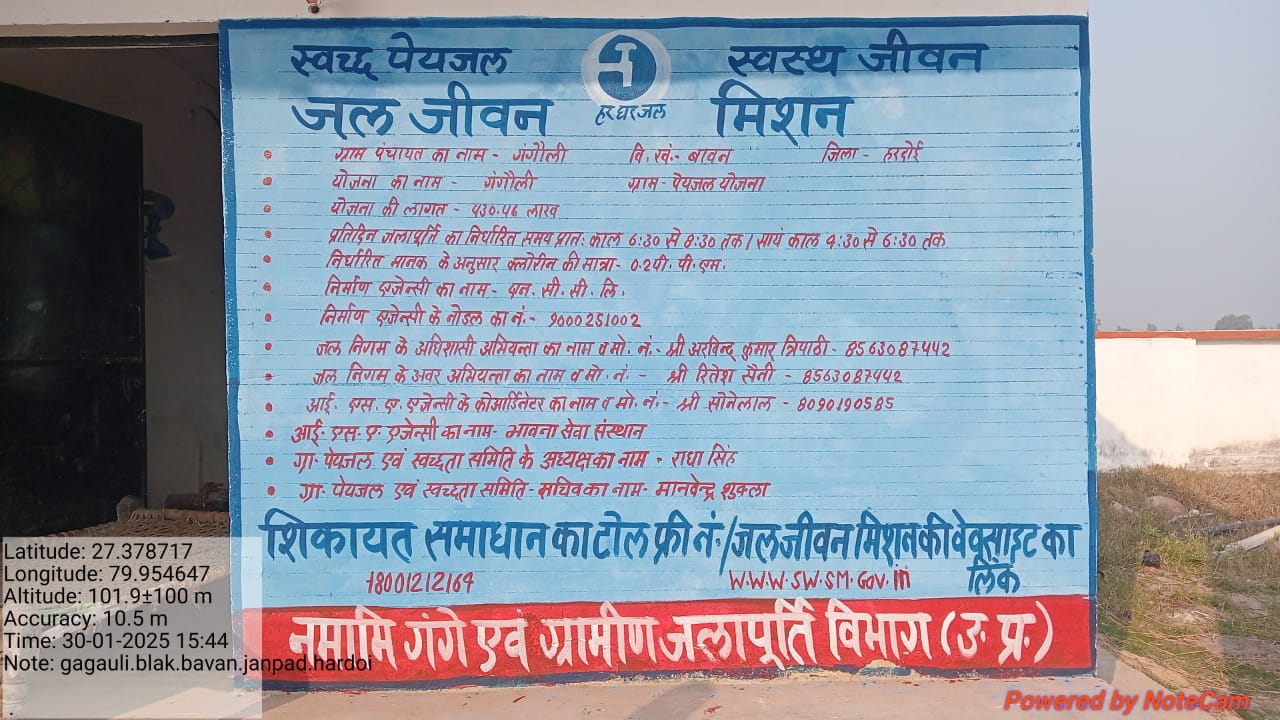 स्वच्छ पेयजल स्वस्थ जीवन
हर घर जल
जल जीवन मिशन
ग्राम पंचायत का नाम - गंगौली वि. खं:- बावन जिला - हरदोई
योजना का नाम - गंगौली ग्राम- पेयजल योजना
योजना की लागत - ५३०.५६ लाख
प्रतिदिन जलापूर्ति का निर्धारित समय प्रात: काल 6:30 से 8:30 तक / सायं काल 4:30 से 6:30 तक
निर्धारित मानक के अनुसार क्लोरीन की मात्रा- 0.2 पी. पी. एम.
निर्माण एजेन्सी का नाम - एन. सी. सी. लि.
निर्माण एजेन्सी के नोडल का नं:- 9000251002
जल निगम के अधिशासी अभियन्ता का नाम व मो. नं.- श्री अरविन्द कुमार त्रिपाठी - 8563087442
जल निगम के अवर अभियन्ता का नाम व मो. नं. - श्री रितेश सैनी - 8563087442
आई. एस. ए. एजेन्सी के कोआर्डिनेटर का नाम व मो. नं.- श्री सोनेलाल - 8090190585
आई. एस. ए. एजेन्सी का नाम- भावना सेवा संस्थान
ग्रा. पेयजल एवं स्वच्छता समिति के अध्यक्ष का नाम - राधा सिंह
ग्रा. पेयजल एवं स्वच्छता समिति - सचिव का नाम- मानवेन्द्र शुक्ला
शिकायत समाधान का टोल फ्री नं:/जल जीवन मिशन की वेवसाइट का लिंक
18001212164 W.W.W.SW.SM.Gov.in
नमामि गंगे एवं ग्रामीण जलापूर्ति विभाग (उ. प्र.)
Latitude: 27.378717
Longitude: 79.954647
Altitude: 101.9±100 m
Accuracy: 10.5 m
Time: 30-01-2025 15:44
Note: gagauli.blak.bavan.janpad.hardoi
Powered by NoteCam